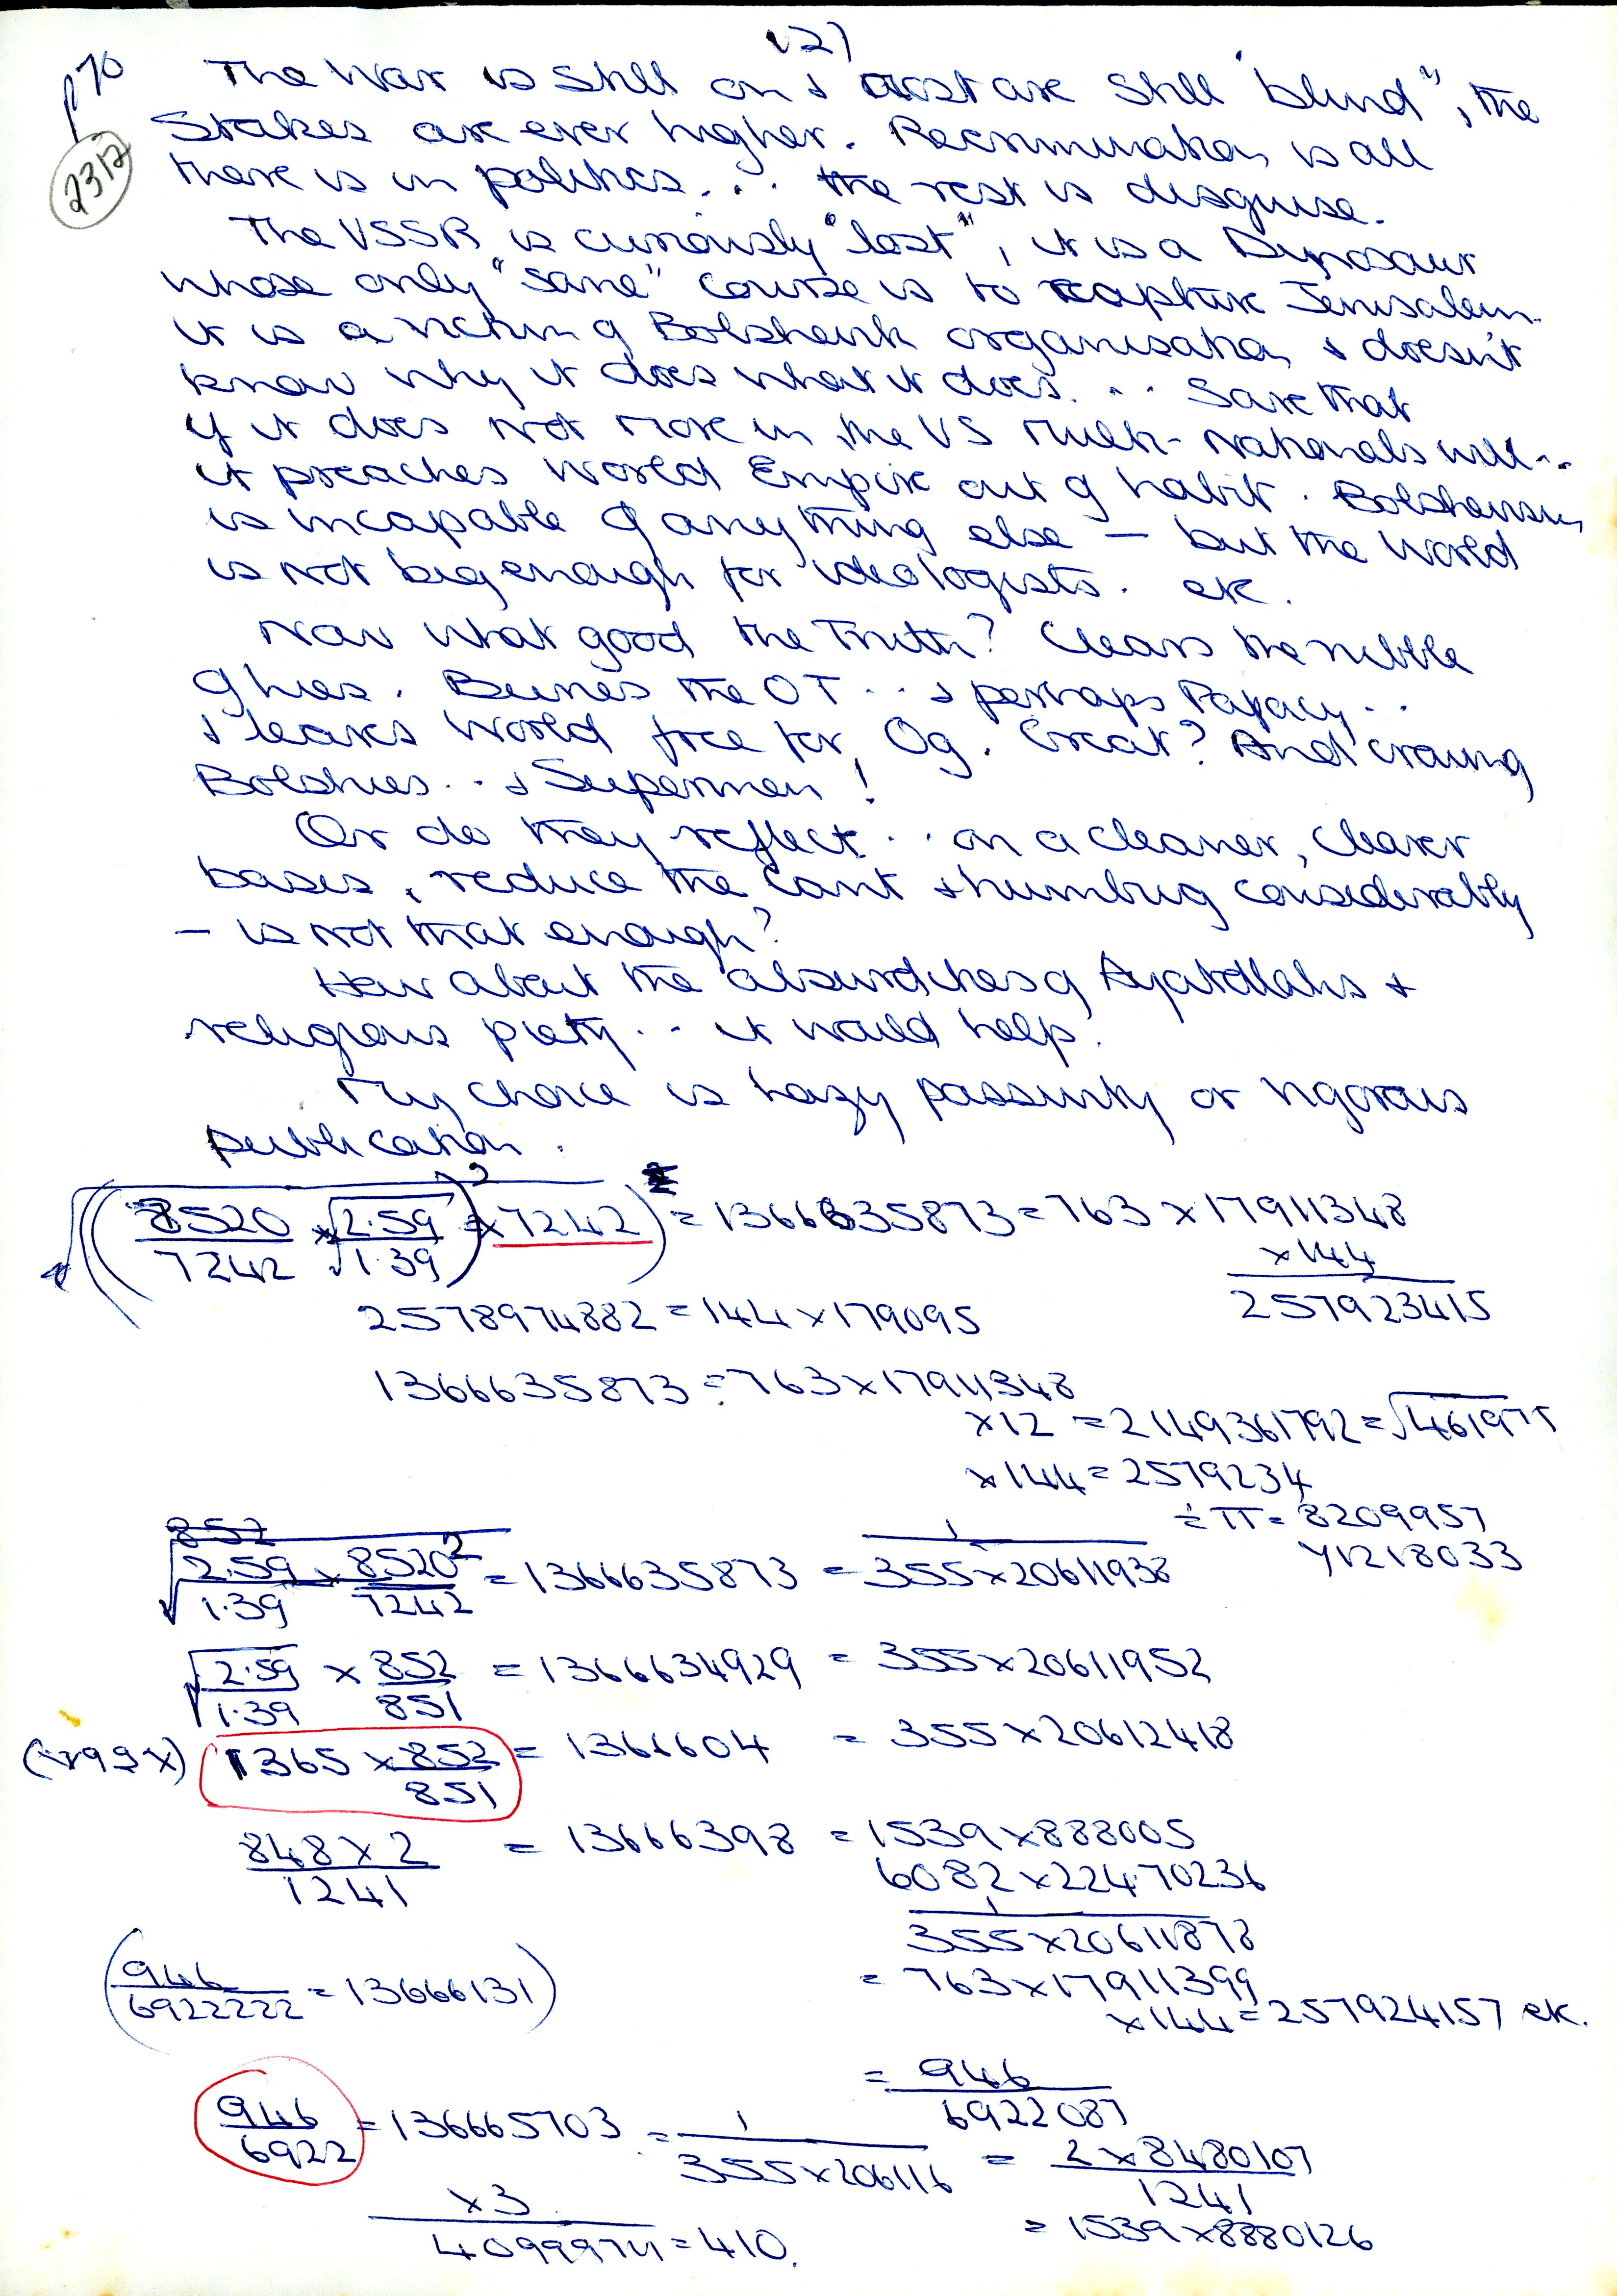 v2)
p70
2312
The War is still on & most are still "blind", the
Stakes are ever higher. Recrimination is all
there is in politics... the rest is disguise.
The USSR is curiously "lost", it is a Dynosaur
whose only "sane" course is to recapture Jerusalem.
it is a victim of Bolshevik organisation & doesn't
know why it does what it does... Save that
if it does not move in the US Multi-Nationals will..
it preaches World Empire out of habit. Bolshevism
is incapable of anything else — but the World
is not big enough for ideologists. etc.
Now what good the Truth? Clears the rubble
of lies. Buries the OT .. & perhaps Papacy ..
& leaves World free for Og. Great? And craving
Bolshies .. & Supermen!
Or do they reflect .. on a cleaner, clearer
bases, reduce the Cant & humbug considerably
— is not that enough?
How about the absurdities of Ayatollahs &
religious piety .. it would help.
My choice is hazy passivity or vigorous
publication.
√((8520/7242 × √2.59/√1.39)² × 7242)² = 1366635873 = 763 × 17911348
×144
257923415
2578974882 = 144 × 179095
1366635873 = 763 × 17911348
×12 = 2149361792 = √461975
×144 = 2579234
÷π = 8209957
852
√2.59/1.39 × 8520²/7242 = 1366635873 = 1/355×20611938
√2.59/1.39 × 852/851 = 1366634929 = 355×20611952
1365 × 852/851 = 1366604 = 355×20612418
848×2/1241 = 13666398 = 1539×888005
6082×22470236
1/355×20611878
(946/6922222 = 13666131)
= 763×17911399
×144 = 257924157 etc.
= 946/6922087
946/6922 = 136665703 = 1/355×206116 = 2×8480107/1241
×3
40999711 = 410.
= 1539×8880126